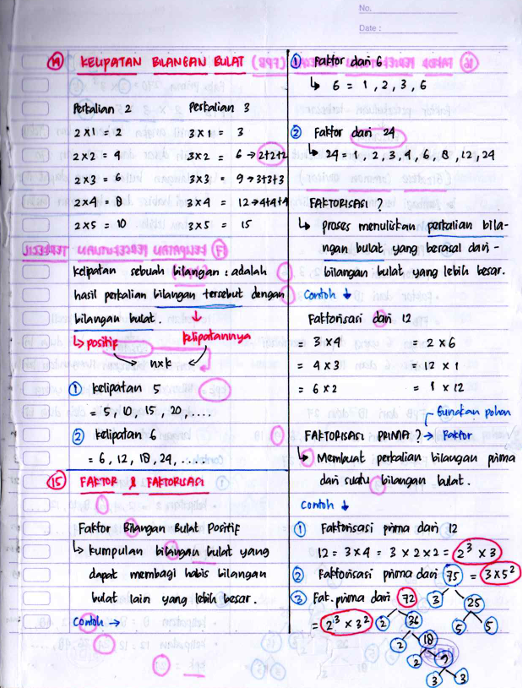 No.
Date :
14 KELIPATAN BILANGAN BULAT
Perkalian 2 Perkalian 3
2 x 1 = 2 3 x 1 = 3
2 x 2 = 4 3 x 2 = 6 → 2+2+2
2 x 3 = 6 3 x 3 = 9 → 3+3+3
2 x 4 = 8 3 x 4 = 12 → 4+4+4
2 x 5 = 10 3 x 5 = 15
kelipatan sebuah bilangan : adalah
hasil perkalian bilangan tersebut dengan
bilangan bulat. ↓
↳ positif kelipatannya
n x k
① kelipatan 5
= 5, 10, 15, 20, ....
② kelipatan 6
= 6, 12, 18, 24, .....
15 FAKTOR & FAKTORISASI
Faktor Bilangan Bulat Positif
↳ kumpulan bilangan bulat yang
dapat membagi habis bilangan
bulat lain yang lebih besar.
Contoh →
① Faktor dari 6
↳ 6 = 1, 2, 3, 6
② Faktor dari 24
↳ 24 = 1, 2, 3, 4, 6, 8, 12, 24
FAKTORISASI ?
↳ proses menuliskan perkalian bila-
ngan bulat yang berasal dari -
bilangan bulat yang lebih besar.
Contoh ↓
Faktorisasi dari 12
= 3 x 4 = 2 x 6
= 4 x 3 = 12 x 1
= 6 x 2 = 1 x 12
Gunakan pohon
FAKTORISASI PRIMA ? → Faktor
↳ Membuat perkalian bilangan prima
dari suatu bilangan bulat.
Contoh ↓
① Faktorisasi prima dari 12
12 = 3 x 4 = 3 x 2 x 2 = 2³ x 3
② Faktorisasi prima dari 75 = 3 x 5²
3 25
5 5
③ Fak. prima dari 72
= 2³ x 3² 2 36
2 18
2 9
3 3